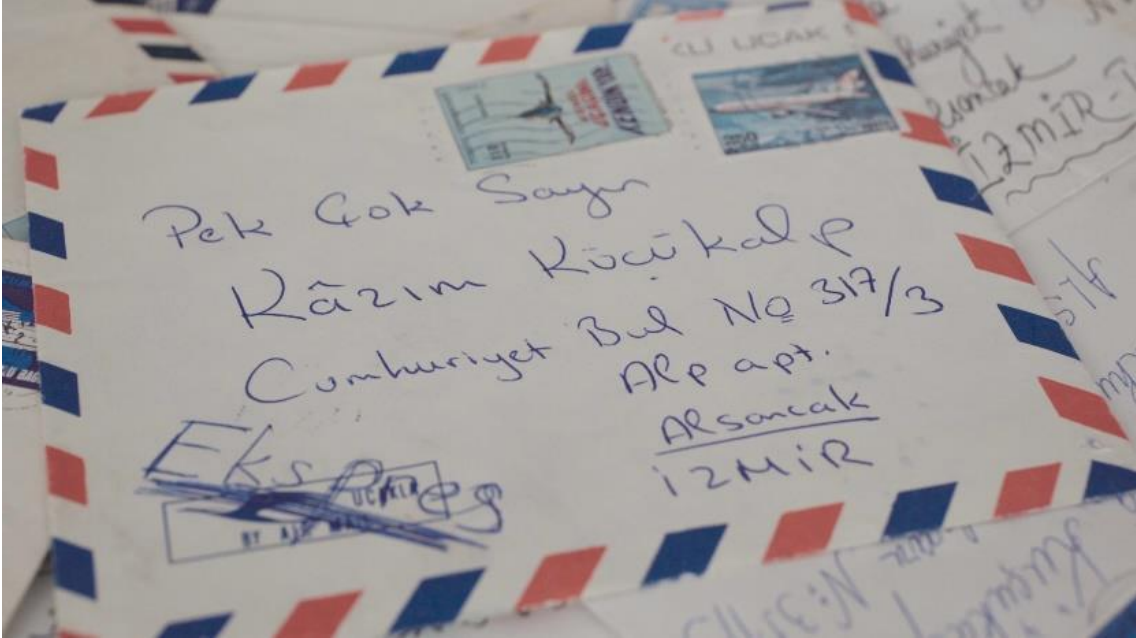 Pek Çok Sayın
Kâzım Küçükalp
Cumhuriyet Bul No 317/3
Alp apt.
Alsancak
İZMİR
Ekspres
UÇAKLA
BY AIR MAIL
UÇAK
İZMİR